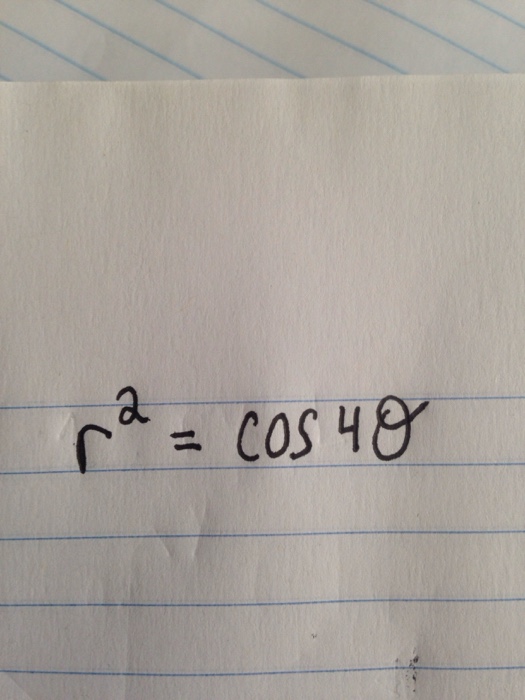 r² = cos 4θ